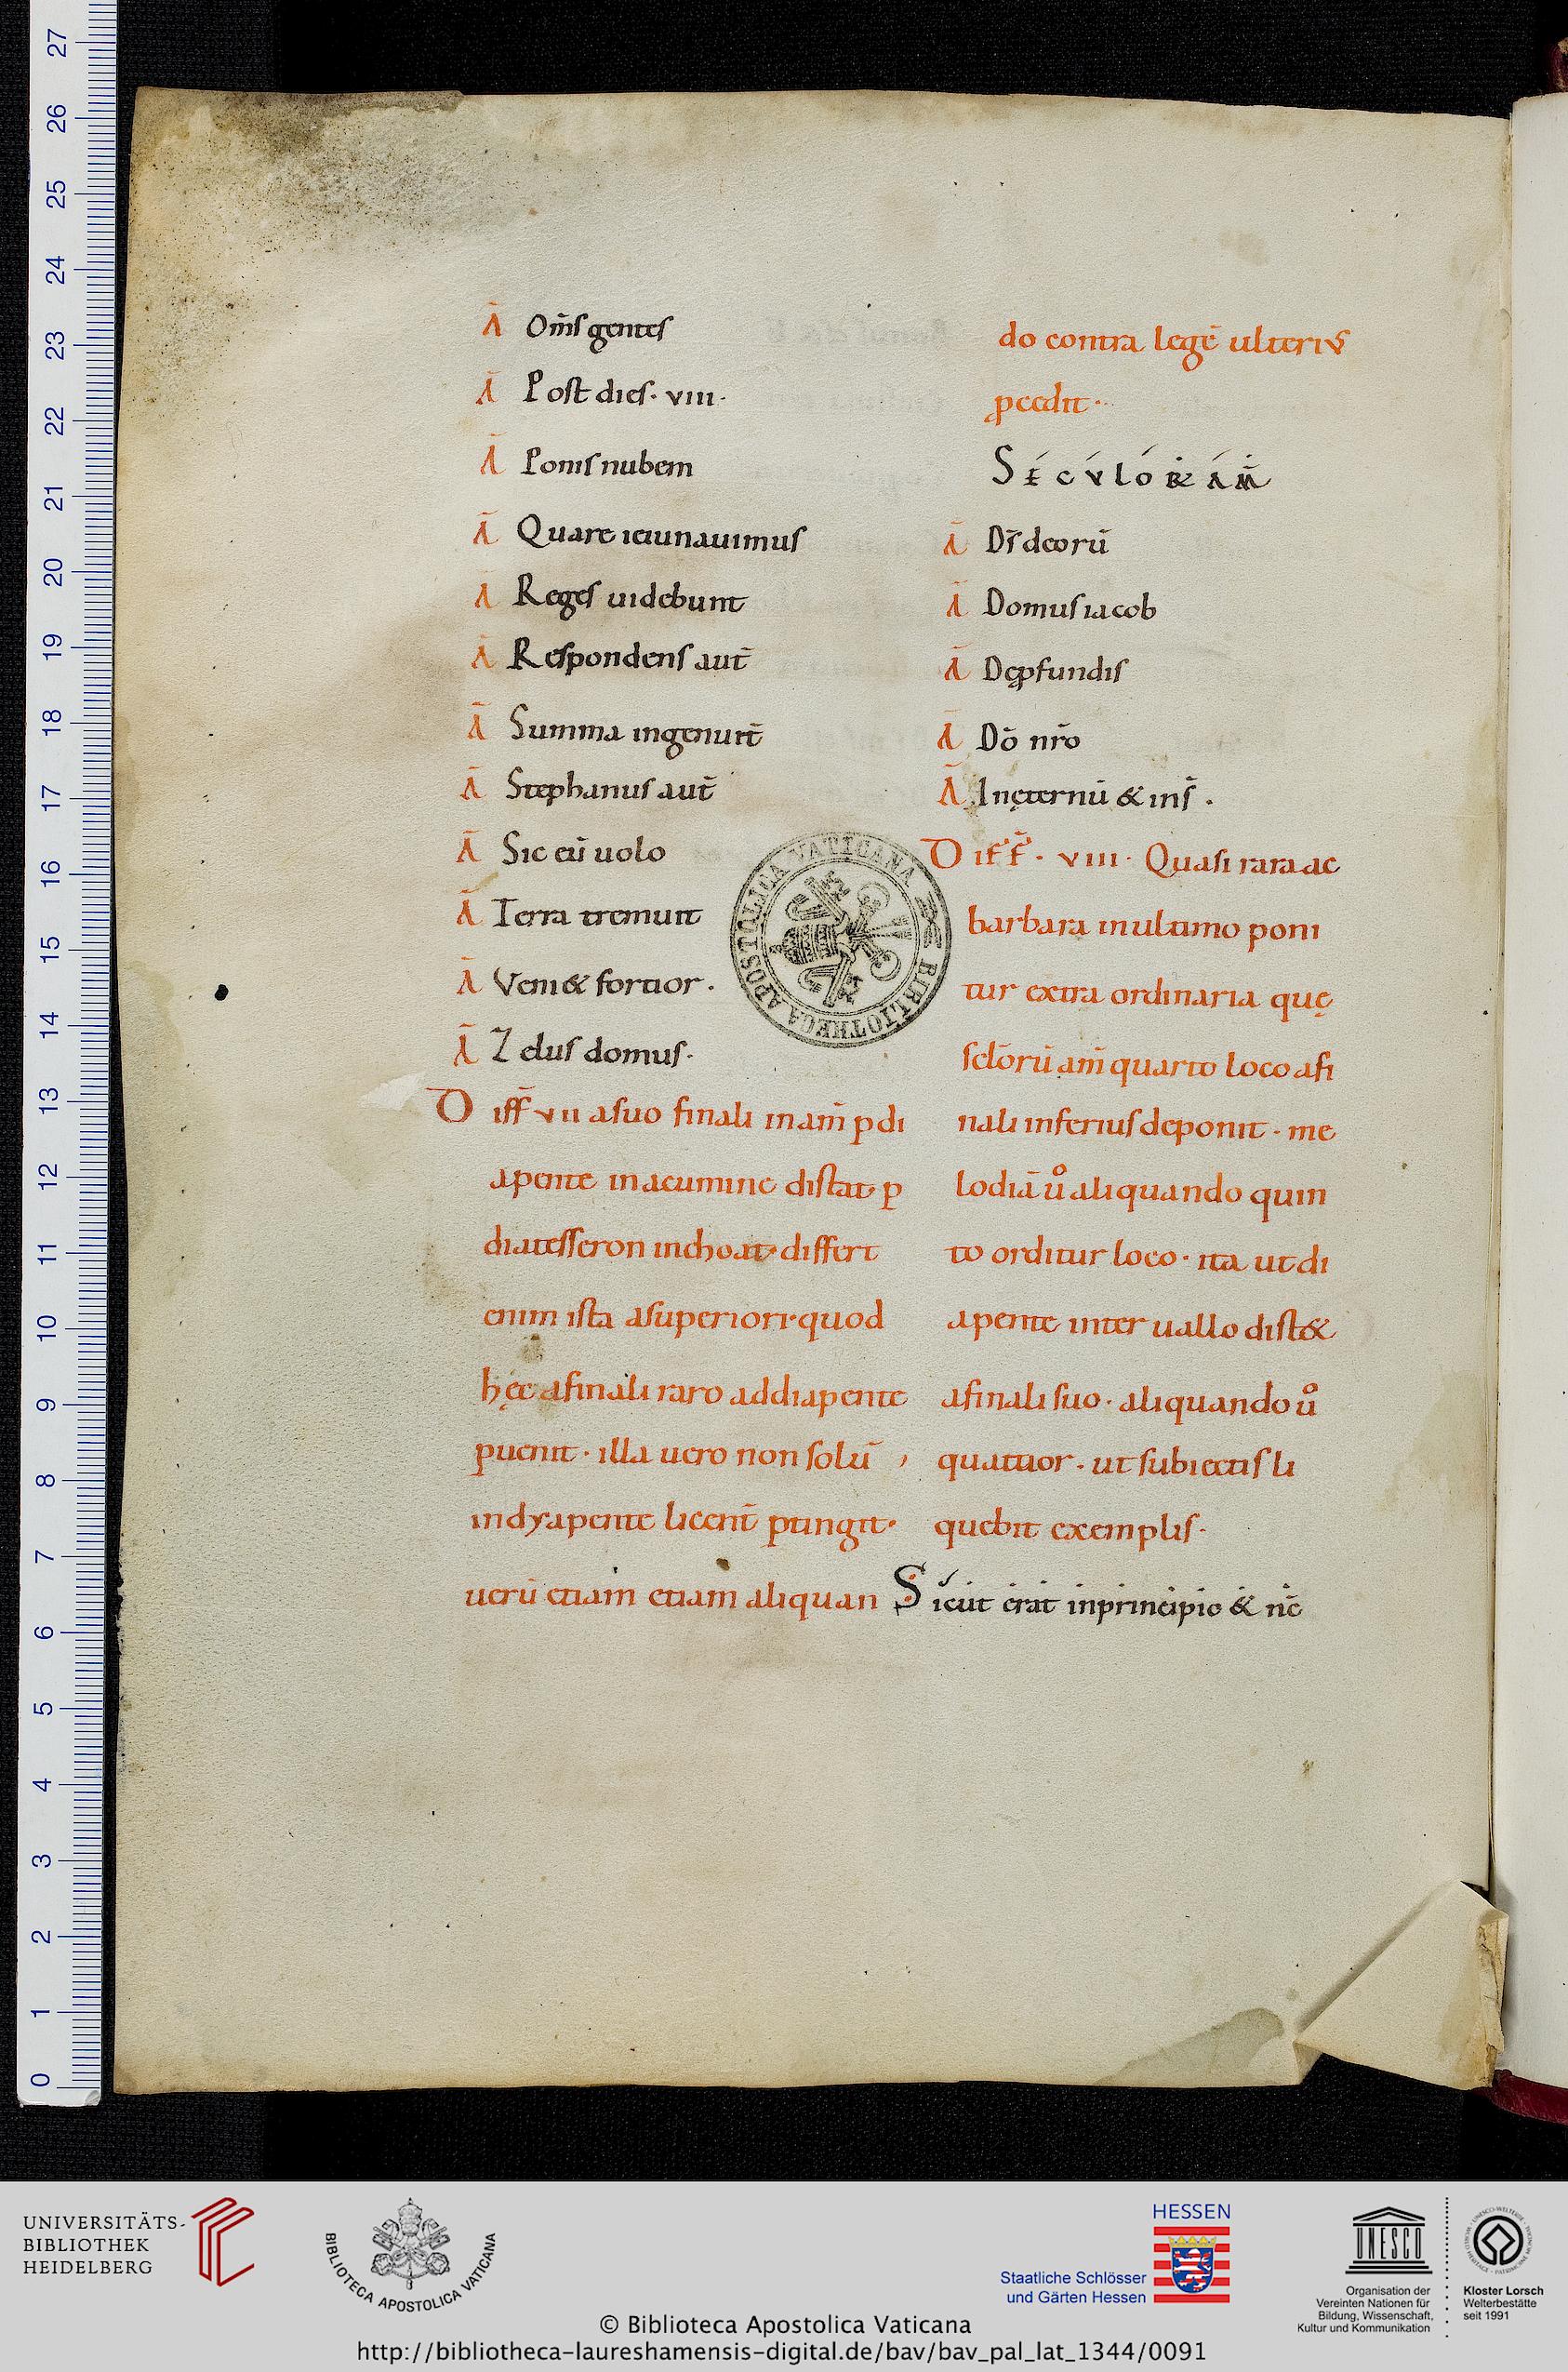 Ā Om̄s gentes
Ā Post dies· VIII·
Ā Ponis nubem
Ā Quare ieiunauimus
Ā Reges uidebunt
Ā Respondens aut̄
Ā Summa ingenuit̄
Ā Stephanus aut̄
Ā Sic eū uolo
Ā Terra tremuit
Ā Veni& fortior·
Ā Zelus domus·
Diff̄ VII a suo finali in am̄ p di
apente in acumine distat p
diatesseron inchoat· differt
enim ista a superiori· quod
hęc a finali raro ad diapente
puenit· illa uero non solū
in dyapente licent̄ ptingit·
uerū etiam etiam aliquan
do contra legē ulteriꝰ
ꝓcedit·
SECVLORAM̄
Ā Ds̄ deorū
Ā Domus iacob
Ā Deꝓfundis
Ā Dō nr̄o
Ā In ęternū & in s̄·
Diff̄· VIII· Quasi rara ac
barbara in ultimo poni
tur extra ordinaria quę
sclōrū am̄ quarto loco a fi
nali inferius deponit· me
lodiā uͦ aliquando quin
to orditur loco· ita ut di
apente interuallo dist&
a finali suo· aliquando uͦ
quattuor· ut subiectis li
quebit exemplis·
Sicut erat in principio & nc̄
BIBLIOTHECA APOSTOLICA VATICANA
27
26
25
24
23
22
21
20
19
18
17
16
15
14
13
12
11
10
9
8
7
6
5
4
3
2
1
0
UNIVERSITÄTS-
BIBLIOTHEK
HEIDELBERG
BIBLIOTECA APOSTOLICA VATICANA
HESSEN
Staatliche Schlösser
und Gärten Hessen
UNESCO
Organisation der
Vereinten Nationen für
Bildung, Wissenschaft,
Kultur und Kommunikation
Kloster Lorsch
Welterbestätte
seit 1991
© Biblioteca Apostolica Vaticana
http://bibliotheca-laureshamensis-digital.de/bav/bav_pal_lat_1344/0091